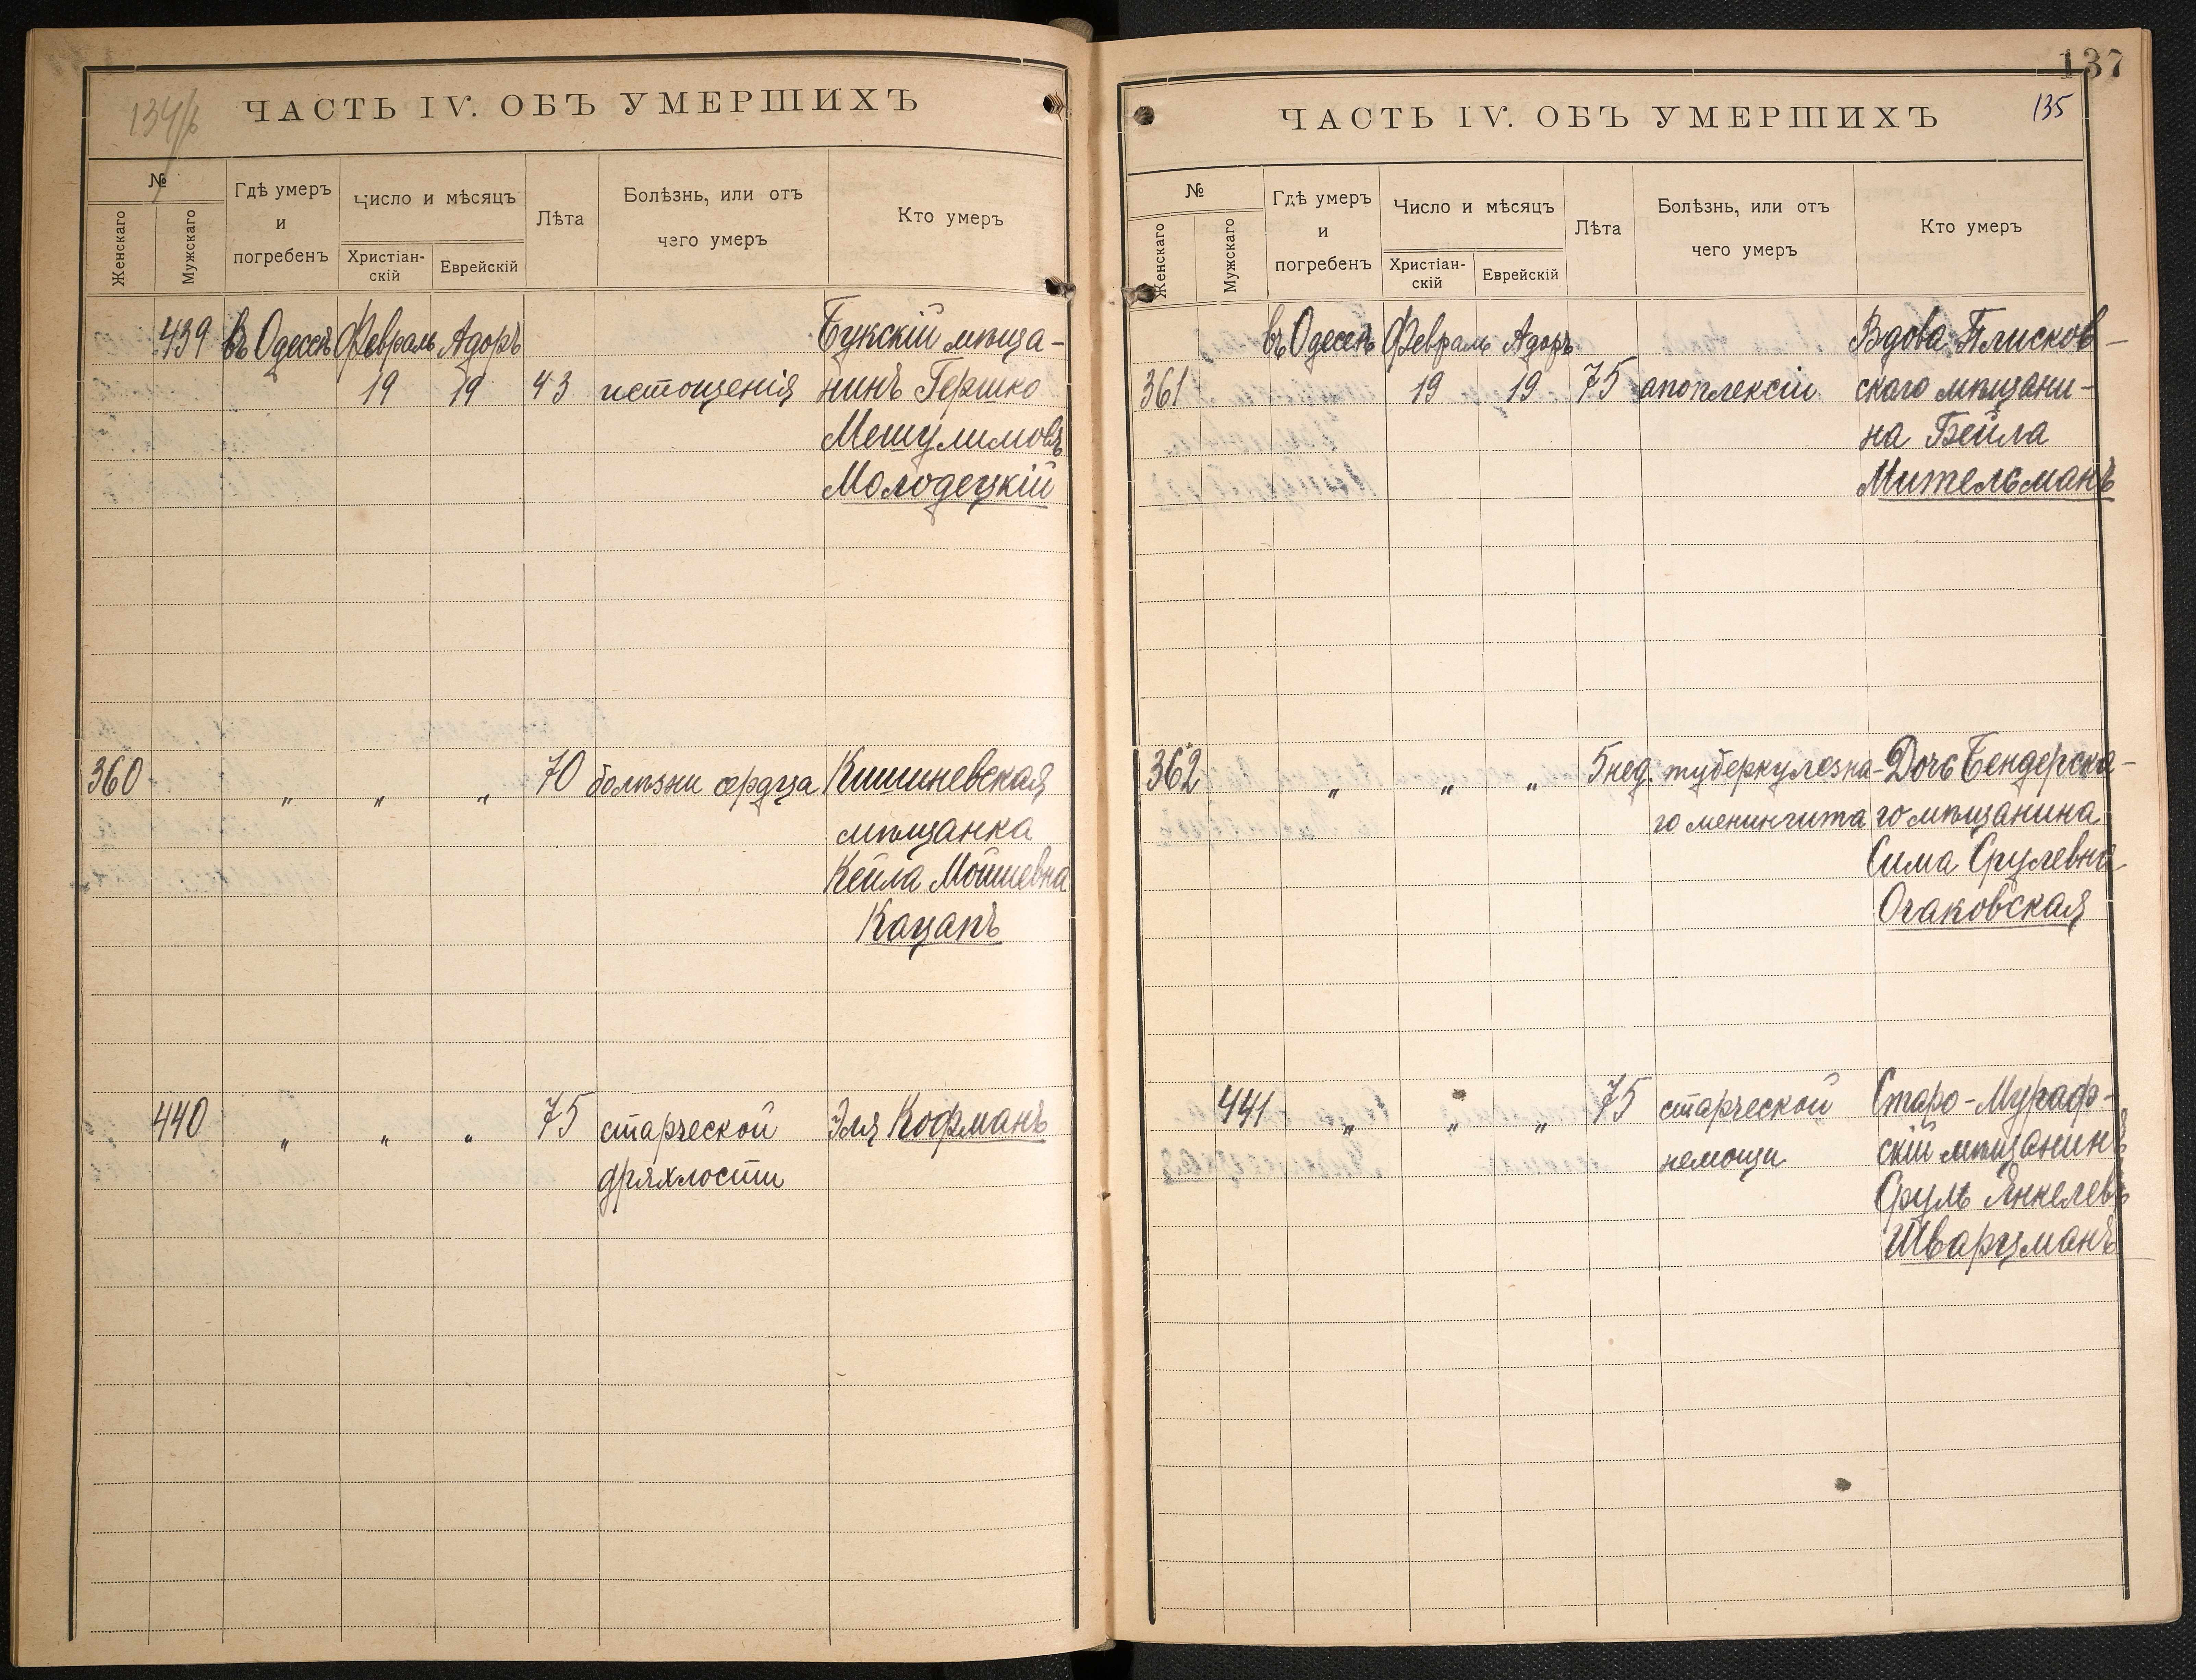 134/б
ЧАСТЬ IV. ОБЪ УМЕРШИХЪ
№
Женскаго
Мужскаго
Гдѣ умеръ
и
погребенъ
Число и мѣсяцъ
Христіан-
скій
Еврейскій
Лѣта
Болѣзнь, или отъ
чего умеръ
Кто умеръ
439 въ Одессѣ Февраль Адоръ Букскій мѣща-
19 19 43 истощенія нинъ Гершко
Мешулимовъ
Молодецкій
360 „ „ „ 70 болѣзни сердца Кишиневская
мѣщанка
Кейла Мошиевна
Кацапъ
440 „ „ „ 75 старческой Эля Кофманъ
дряхлости
137
135
ЧАСТЬ IV. ОБЪ УМЕРШИХЪ
№
Женскаго
Мужскаго
Гдѣ умеръ
и
погребенъ
Число и мѣсяцъ
Христіан-
скій
Еврейскій
Лѣта
Болѣзнь, или отъ
чего умеръ
Кто умеръ
въ Одессѣ Февраль Адоръ Вдова Плисков-
361 19 19 75 апоплексіи скаго мѣщани-
на Бейла
Мительманъ
362 „ „ „ 5 нед. туберкулезна- Дочь Бендерска-
го менингита го мѣщанина
Сима Срулевна
Очаковская
441 „ „ „ 75 старческой Старо-Мураф-
немощи скій мѣщанинъ
Сруль Янкелевъ
Шварцманъ